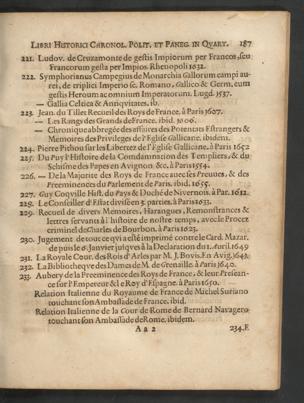 LIBRI HISTORICI CHRONOL. POLIT. ET PANEG. IN QUARV. 187
221. Ludov. de Cruzamonte de gestis Impiorum per Francos, seu
Francorum gesta per Impios. Rhenopoli 1632.
222. Symphorianus Campegius de Monarchia Gallorum campi au-
rei, de triplici Imperio sc. Romano, Gallico & Germ. cum
gestis Heroum ac omnium Imperatorum. Lugd. 1537.
— Gallia Celtica & Antiqvitates. ib.
223. Jean du Tilier Recueil des Roys de France. à Paris 1607.
— Les Rangs des Grands de France. ibid. 1606.
— Chronique abbregée des affaires des Potentats Estrangers &
Memoires des Privileges de l'Eglise Gallicane. ibidem.
224. Pierre Pithou sur les Libertez de l'Eglise Gallicane, à Paris 1652
225. Du Puy l'Histoire de la Condamnation des Templiers, & du
Schisme des Papes en Avignon. 8c. à Paris 1554.
226. — De la Majorite des Roys de France avec ses Preuves, & des
Preeminences du Parlement de Paris. ibid. 1655.
227. Guy Coqville Hist. du Pays & Duché de Nivernois. à Par. 1612.
228. Le Conseiller d'Estat divisé en 3. parties. à Paris 1633.
229. Recueil de divers Memoires, Harangues, Remonstrances &
lettres servants à l'histoire de nostre temps, avec le Procez
criminel de Charles de Bourbon. à Paris 1623.
230. Jugement de tout ce qvi a esté imprimé contre le Card. Mazar.
depuis le 6. Janvier jusques à la Declaration du 1. Avril. 1649
231. La Royale Cour. des Rois d'Arles par M. J. Bovis. En Avig. 1641.
232. La Bibliotheqve des Dames de M. de Grenaille. à Paris 1640.
233. Aubery de la Preeminence des Roys de France, & leur Presean-
ce sur l'Empereur & le Roy d'Espagne. à Paris 1650.
Relation Italienne du Royaume de France de Michel Suriano
touchant son Ambassade de France. ibid.
Relation Italienne de la Cour de Rome de Bernard Navagero
touchant son Ambassade de Rome. ibidem.
A a 2 234. F